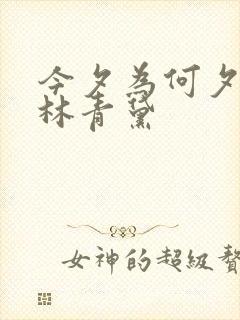 今夕為何夕
林青黛
女神的超級贅